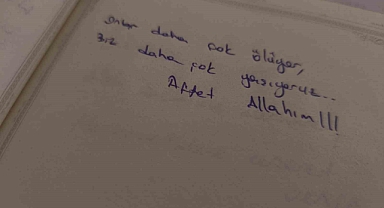 Onlar daha çok ölüyor,
Biz daha çok yaşıyoruz...
Affet Allahım!!!